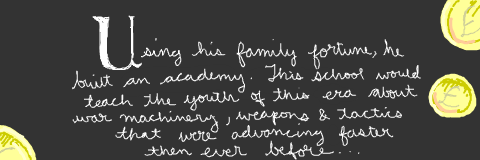 Using his family fortune, he
built an academy. This school would
teach the youth of this era about
war machinery, weapons & tactics
that were advancing faster
then ever before...